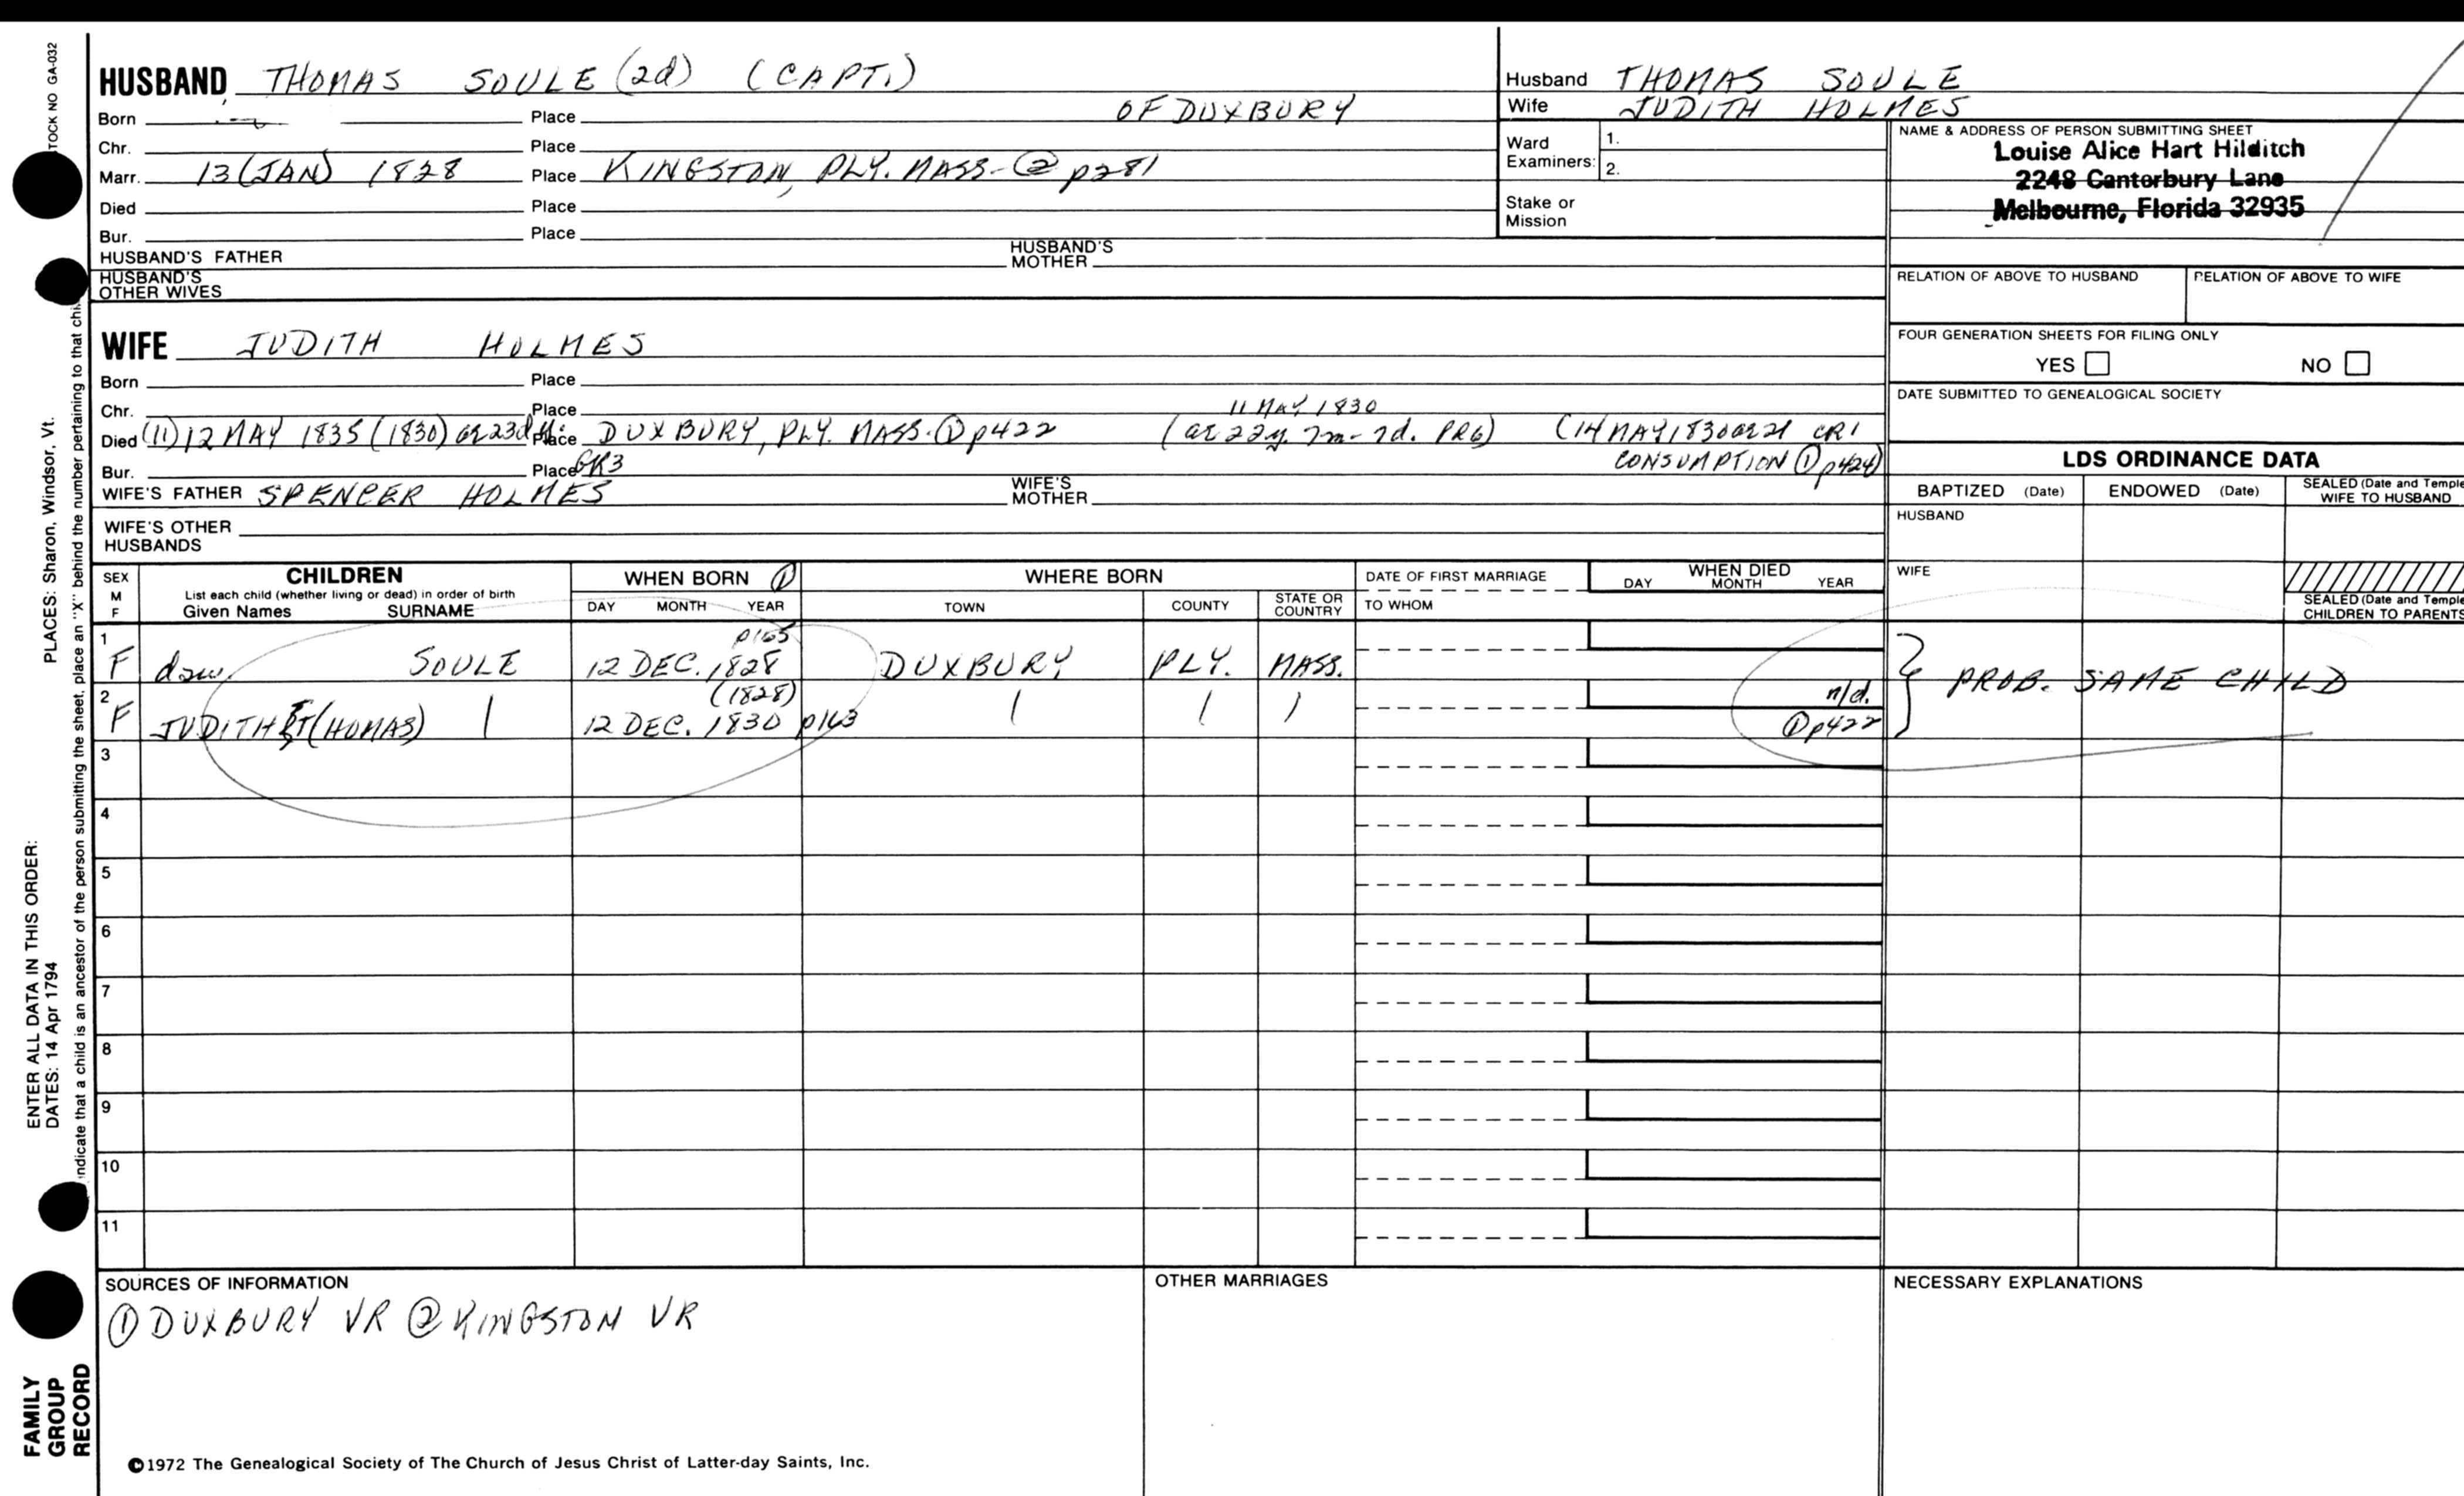 HUSBAND THOMAS SOULE (2d) (CAPT.)
Born Place OF DUXBURY
Chr. Place
Marr. 13 (JAN) 1828 Place KINGSTON, PLY. MASS. ② p281
Died Place
Bur. Place
HUSBAND'S FATHER HUSBAND'S MOTHER
HUSBAND'S OTHER WIVES
Husband THOMAS SOULE
Wife JUDITH HOLMES
Ward Examiners: 1.
2.
Stake or Mission
NAME & ADDRESS OF PERSON SUBMITTING SHEET
Louise Alice Hart Hilditch
2248 Canterbury Lane
Melbourne, Florida 32935
RELATION OF ABOVE TO HUSBAND RELATION OF ABOVE TO WIFE
FOUR GENERATION SHEETS FOR FILING ONLY
YES NO
DATE SUBMITTED TO GENEALOGICAL SOCIETY
WIFE JUDITH HOLMES
Born Place
Chr. Place 11 MAY 1830
Died (11) 12 MAY 1835 (1830) ae 23d y. Place DUXBURY, PLY. MASS. ① p422 (ae 22y. 7m - 7d. PR6) (14 MAY 1830 ae 21 CR1
Bur. Place GR3 CONSUMPTION ① p424)
WIFE'S FATHER SPENCER HOLMES WIFE'S MOTHER
WIFE'S OTHER HUSBANDS
LDS ORDINANCE DATA
BAPTIZED (Date) ENDOWED (Date) SEALED (Date and Temple
WIFE TO HUSBAND
HUSBAND
WIFE
SEALED (Date and Temple
CHILDREN TO PARENTS
SEX M F
CHILDREN
List each child (whether living or dead) in order of birth
Given Names SURNAME
WHEN BORN ①
DAY MONTH YEAR
WHERE BORN
TOWN COUNTY STATE OR COUNTRY
DATE OF FIRST MARRIAGE
TO WHOM
WHEN DIED
DAY MONTH YEAR
p165
1 F daw. SOULE 12 DEC. 1828 DUXBURY PLY. MASS.
PROB. SAME CHILD
(1828) n/d.
2 F JUDITH T(HOMAS) 12 DEC. 1830 p163 ① p422
3
4
5
6
7
8
9
10
11
SOURCES OF INFORMATION
① DUXBURY VR ② KINGSTON VR
OTHER MARRIAGES
NECESSARY EXPLANATIONS
©1972 The Genealogical Society of The Church of Jesus Christ of Latter-day Saints, Inc.
TOCK NO GA-032
PLACES: Sharon, Windsor, Vt.
ENTER ALL DATA IN THIS ORDER:
DATES: 14 Apr 1794
indicate that a child is an ancestor of the person submitting the sheet, place an "X" behind the number pertaining to that
FAMILY
GROUP
RECORD